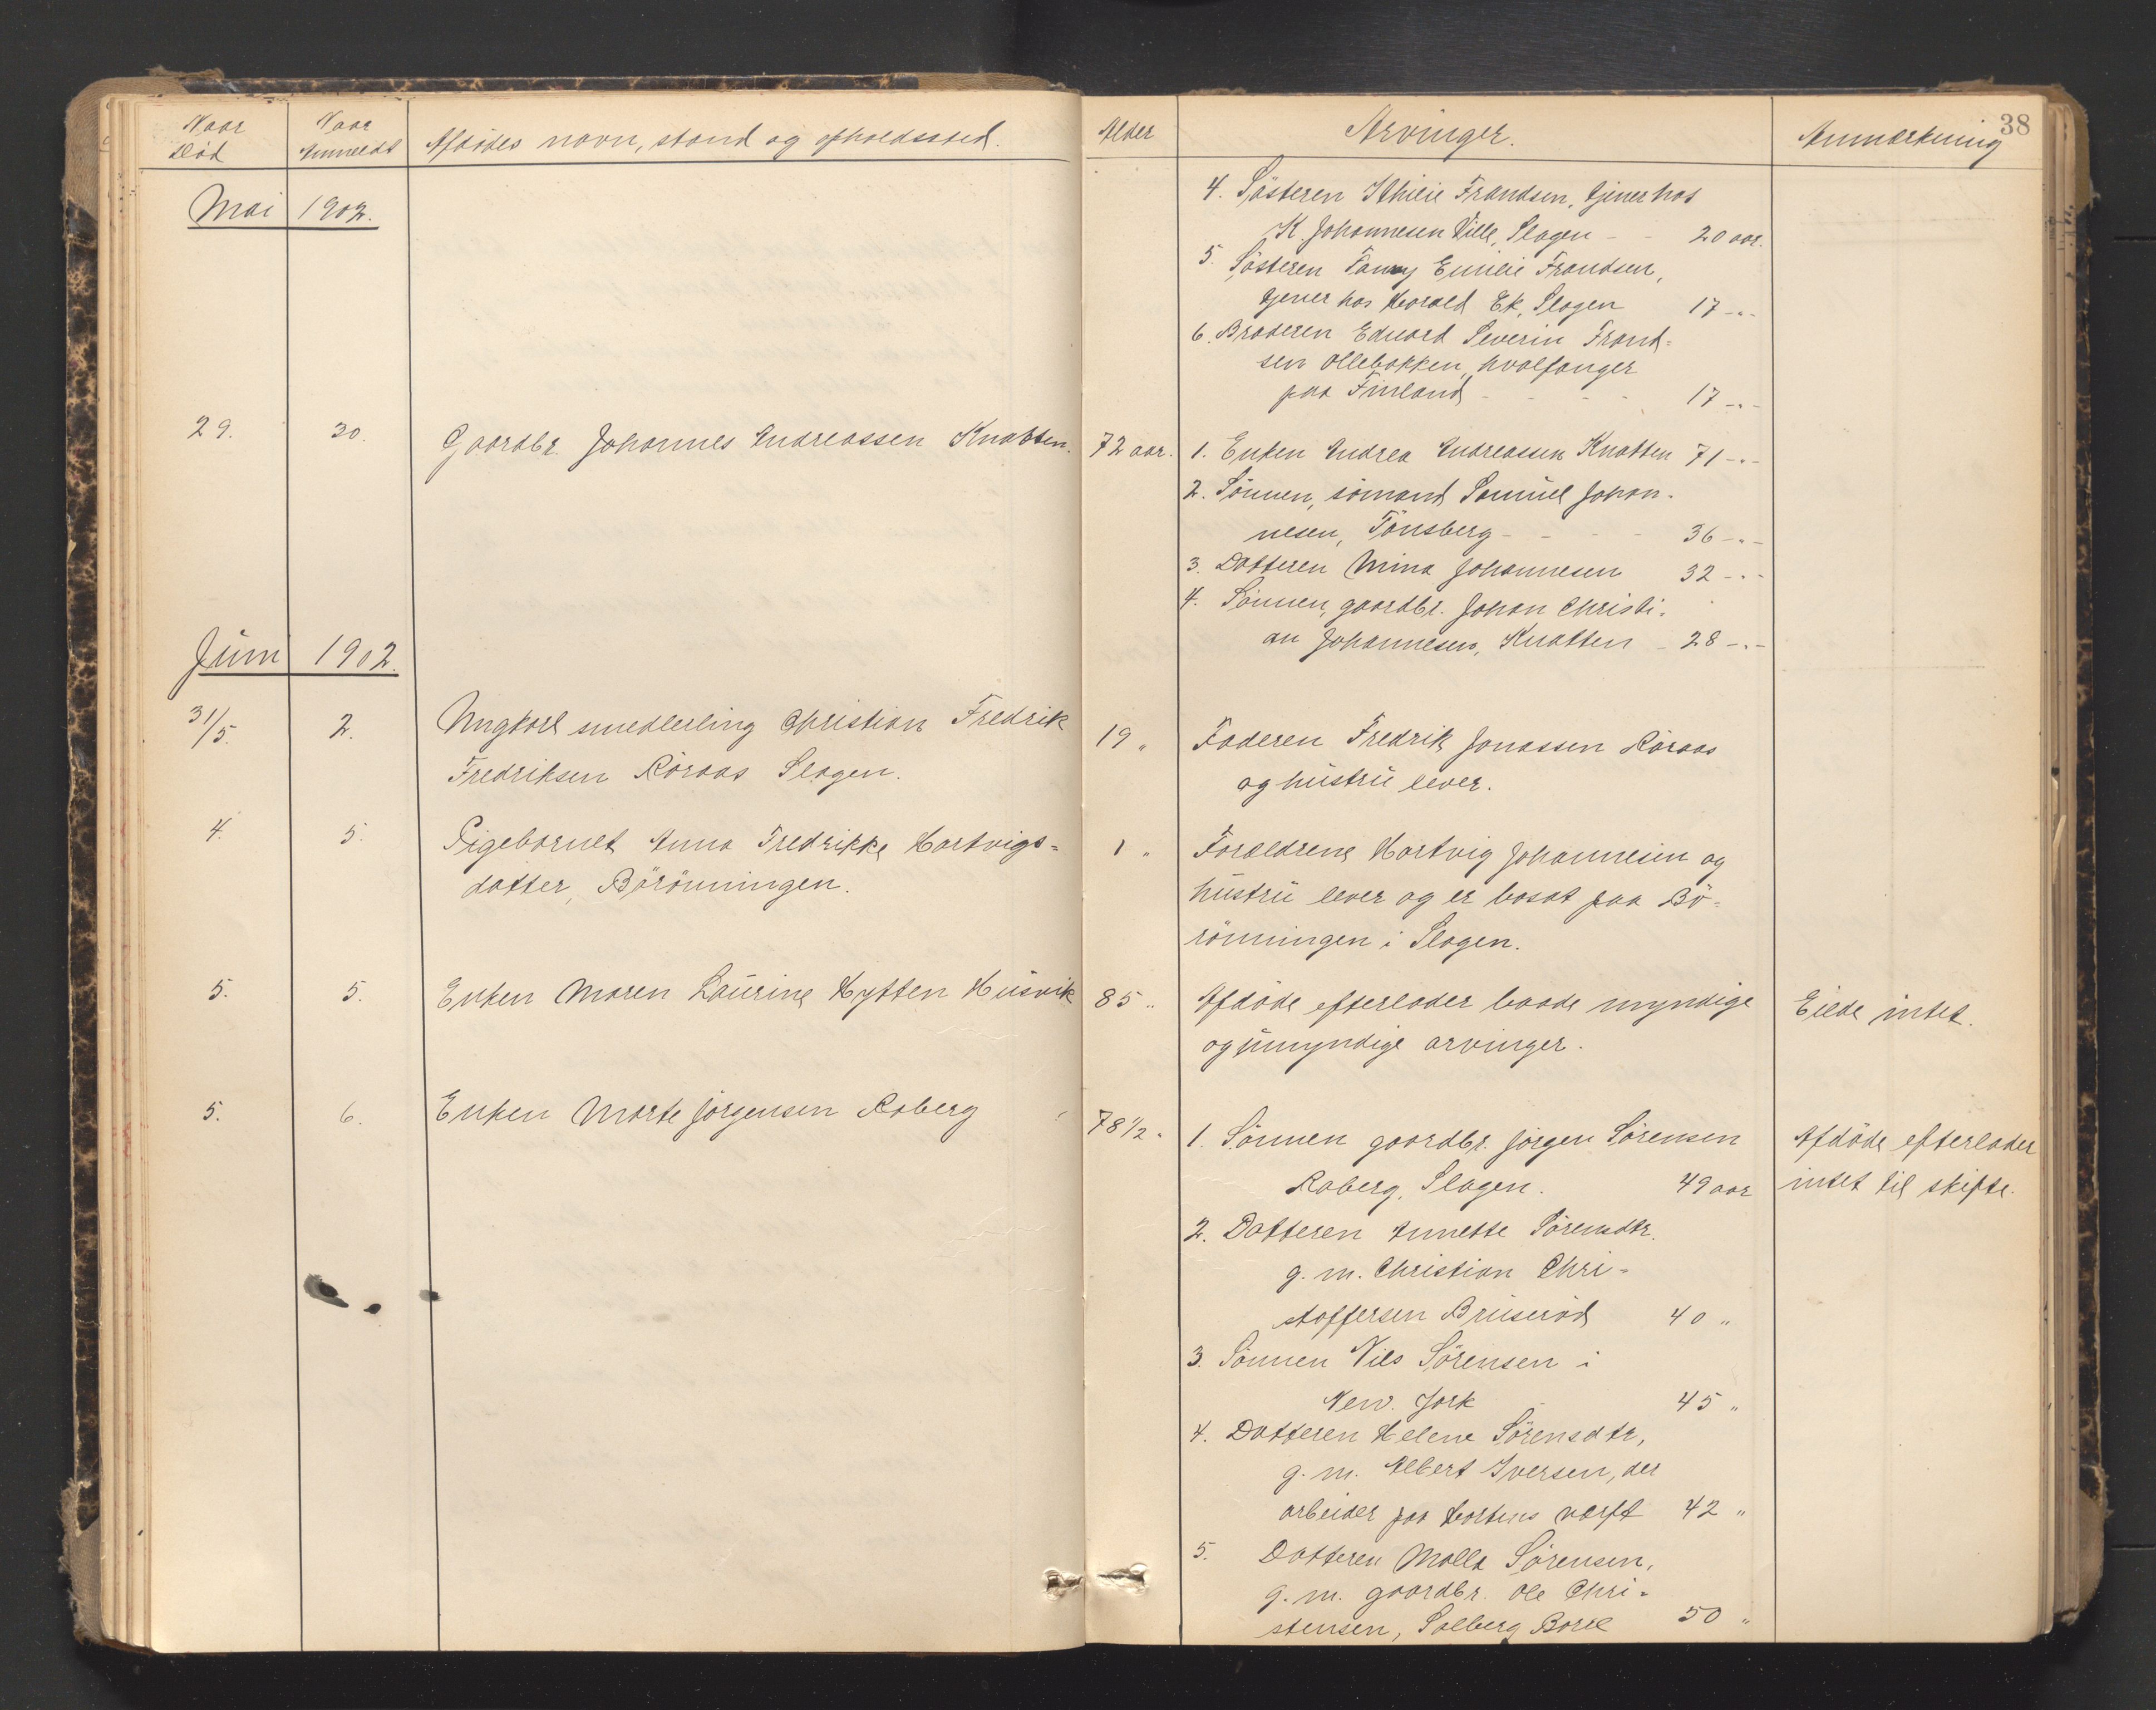 38
Naar Død
Naar Anmeldt
Afdødes navn, stand og opholdssted.
Alder
Arvinger.
Anmærkning
Mai 1902.
4. Søsteren Thilie Frandsen, tjener hos
K. Johannesen Ville, Slagen - - 20 aar.
5. Søsteren Fanny Emilie Frandsen,
tjener hos Harald Ek, Slagen 17 -"-
6. Broderen Edvard Severin Frand-
sen Ollebakken, hvalfanger
paa Finland - - - 17 -"-
29. 30. Gaardbr. Johannes Andreassen Knatten. 72 aar. 1. Enken Andrea Andreassen Knatten 71 -"-
2. Sønnen, sømand Samuel Johan-
nesen, Tønsberg - - - 36 -"-
3. Datteren Mina Johannesen 32 -"-
4. Sønnen, gaardbr. Johan Christi-
an Johannesen, Knatten - 28 -"-
Juni 1902.
31/5. 2. Ungkarl smedlerling Christian Fredrik 19 " Faderen Fredrik Jonassen Røraas
Fredriksen Røraas Slagen. og hustru lever.
4. 5. Pigebarnet Anna Fredrikke Hartvigs- 1 " Forældrene Hartvig Johannesen og
datter, Børønningen. hustru lever og er bosat paa Bø-
rønningen i Slagen.
5. 5. Enken Maren Laurine Hytten Husvik 85 " Afdøde efterlader baade myndige Eiede intet.
og umyndige arvinger.
5. 6. Enken Marte Jørgensen Roberg 78 1/2 " 1. Sønnen gaardbr. Jørgen Sørensen Afdøde efterlader
Roberg, Slagen. 49 aar intet til skifte.
2. Datteren Annette Sørensdtr.
g. m. Christian Chri-
stoffersen Bruserød 40 "
3. Sønnen Nils Sørensen i
New. Jork 45 "
4. Datteren Helene Sørensdtr,
g. m. Albert Iversen, der
arbeider paa Hortens værft 42 "
5. Datteren Malla Sørensen,
g. m. gaardbr. Ole Chri-
stensen, Solberg Borre 50 "